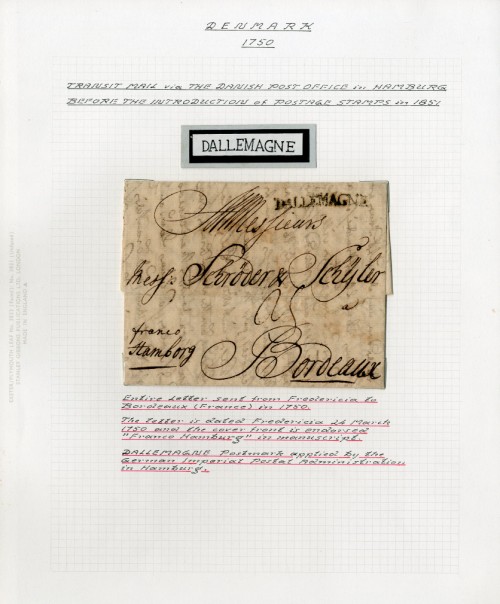 DENMARK
1750
TRANSIT MAIL via THE DANISH POST OFFICE in HAMBURG
BEFORE THE INTRODUCTION of POSTAGE STAMPS in 1851
DALLEMAGNE
DALLEMAGNE
A Messieurs
Mess.rs Schröder & Schÿler
a
franco
Hamborg
Bordeaux
Entire letter sent from Fredericia to
Bordeaux (France) in 1750.
The letter is dated Fredericia 24 March
1750 and the cover front is endorsed
"Franco Hamburg" in manuscript.
DALLEMAGNE Postmark applied by the
German Imperial Postal Administration
in Hamburg.